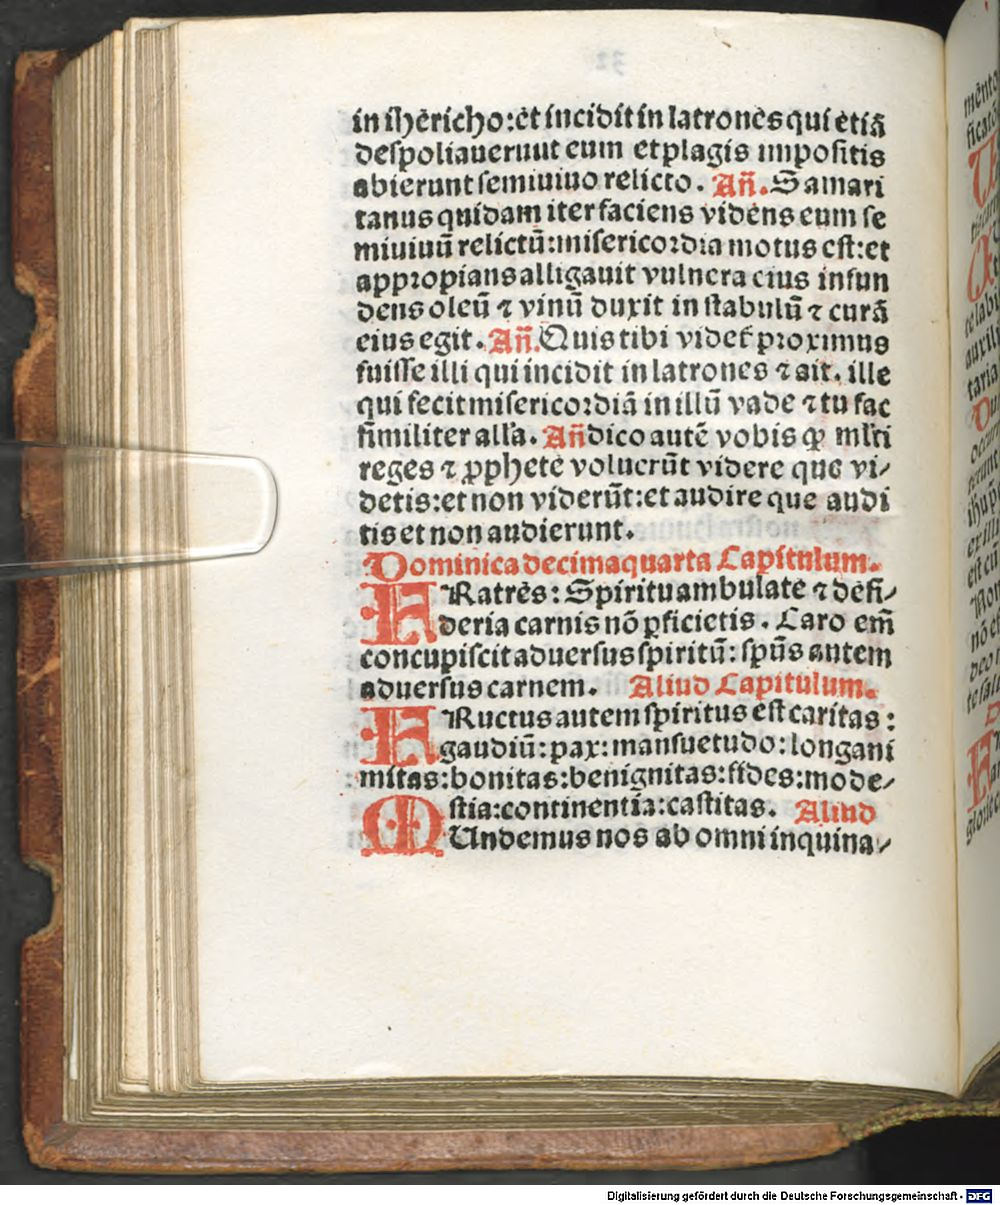 in iherícho: et incidit in latrones qui etiã
despoliaueruut eum et plagis impositis
abierunt semiuiuo relicto. Añ. Samari
tanus quidam iter faciens videns eum se
miuiuũ relictũ: misericordia motus est: et
appropians alligauit vulnera eius infun
dens oleũ ⁊ vinũ duxit in stabulũ ⁊ curã
eius egit. Añ. Quis tibi videt̃ proximus
fuisse illi qui incidit in latrones ⁊ ait. ille
qui fecit misericordiã in illũ vade ⁊ tu fac
similiter alľa. Añ dico autẽ vobis ꝙ mľti
reges ⁊ ꝓphete voluerũt videre que vi⸗
detis: et non viderũt: et audire que audi
tis et non audierunt.
Dominica decimaquarta Capitulum.
FRatres: Spiritu ambulate ⁊ desi⸗
deria carnis nõ ꝑficietis. Caro em̃
concupiscit aduersus spiritũ: spũs autem
aduersus carnem. Aliud Capitulum.
FRuctus autem spiritus est caritas:
gaudiũ: pax: mansuetudo: longani
mitas: bonitas: benignitas: fides: mode⸗
stia: continentia: castitas. Aliud
MUndemus nos ab omni inquina⸗
Digitalisierung gefördert durch die Deutsche Forschungsgemeinschaft - DFG